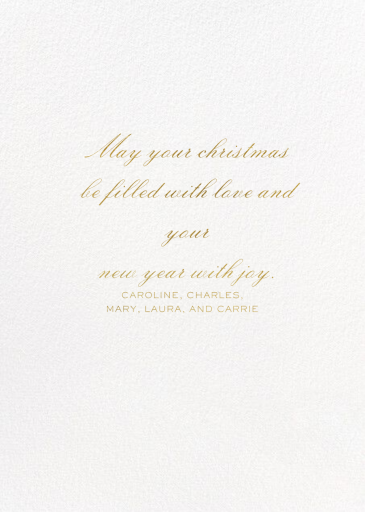 May your christmas
be filled with love and
your
new year with joy.
CAROLINE, CHARLES,
MARY, LAURA, AND CARRIE